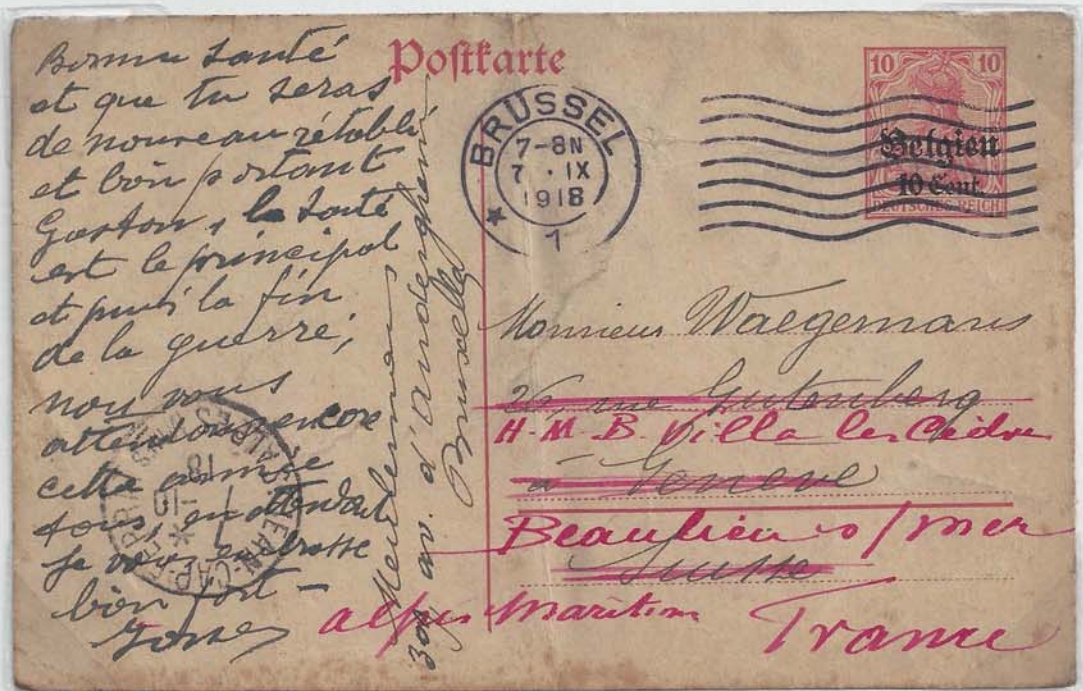 Postkarte
Bonne santé
et que tu seras
de nouveau rétabli
et bien portant
Gaston, la santé
est le principal
et puis la fin
de la guerre,
nous vous
attendons encore
cette année
tous, en attendant
je vous embrasse
bien fort -
Meulemans
309 av. d'auderghem
Bruxelles
BRÜSSEL
7-8N
7 . IX
1918
1
10 10
Belgien
10 Cent.
DEUTSCHES REICH
Monsieur Waegemans
26, rue Gutenberg
H.M.B. Villa les Cèdres
à Genève
Beaulieu s/mer
Suisse
alpes Maritim
France